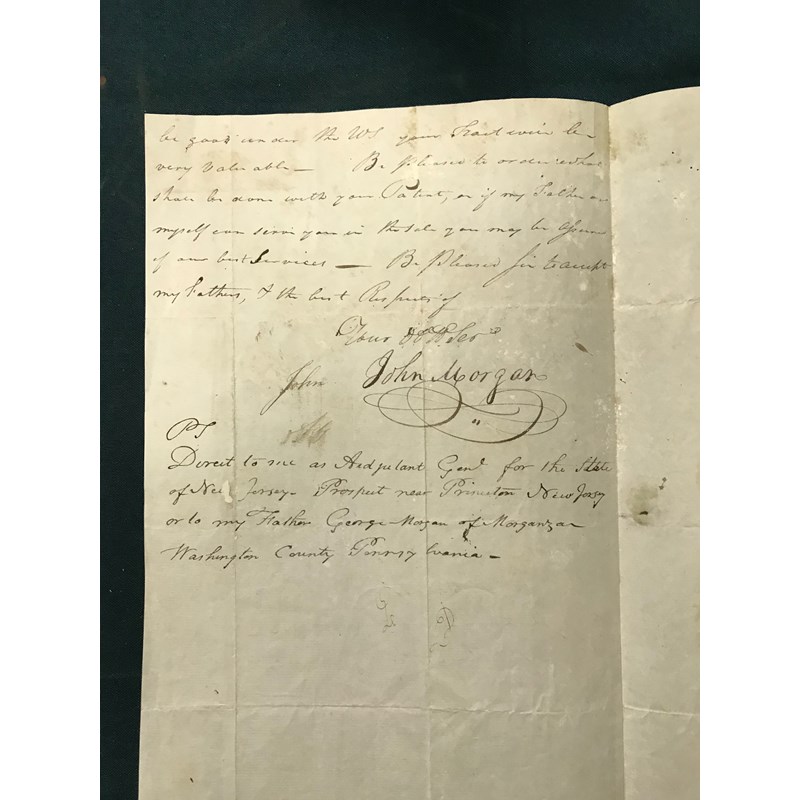 be good under the US your Tract will be
very Valuable — Be pleased to order what
shall be done with your Patent, or if my Father or
myself can serve you in the sale you may be Assured
of our best Services — Be Pleased Sir to accept
my Fathers, & the best Respects of
Your Ser
John John Morgan
PS
Direct to me as Aedjutant Genl for the State
of New Jersey. Prospect near Princeton New Jersy
or to my Father George Morgan of Morganza
Washington County Pennsylvania —